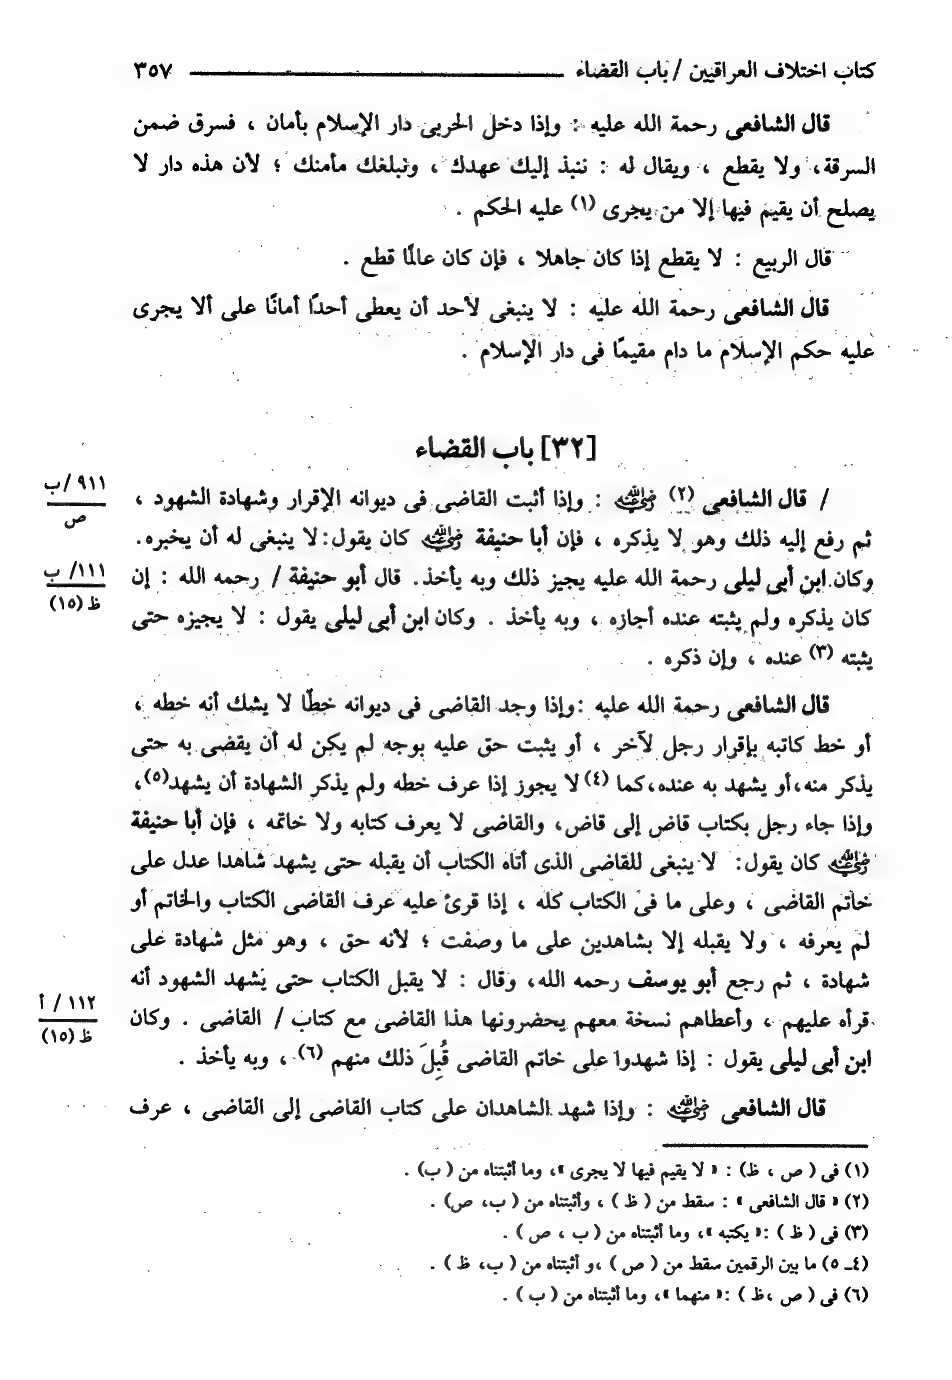 كتاب اختلاف العراقيين / باب القضاء ـــــــــــ ٣٥٧
قال الشافعى رحمة الله عليه : وإذا دخل الحربى دار الإسلام بأمان ، فسرق ضمن
السرقة، ولا يقطع ، ويقال له : ننبذ إليك عهدك ، ونبلغك مأمنك ؛ لأن هذه دار لا
يصلح أن يقيم فيها إلا من يجرى (١) عليه الحكم .
قال الربيع : لا يقطع إذا كان جاهلا ، فإن كان عالمًا قطع .
قال الشافعى رحمة الله عليه : لا ينبغى لأحد أن يعطى أحدًا أمانًا على ألا يجرى
عليه حكم الإسلام ما دام مقيمًا فى دار الإسلام .
[٣٢] باب القضاء
/ قال الشافعى (٢) رضي الله عنه : وإذا أثبت القاضى فى ديوانه الإقرار وشهادة الشهود ،
٩١١ /ب
ص
ثم رفع إليه ذلك وهو لا يذكره ، فإن أبا حنيفة رضي الله عنه كان يقول: لا ينبغى له أن يخبره.
وكان ابن أبى ليلى رحمة الله عليه يجيز ذلك وبه يأخذ. قال أبو حنيفة / رحمه الله : إن
١١١/ ب
ظ (١٥)
كان يذكره ولم يثبته عنده أجازه ، وبه يأخذ . وكان ابن أبى ليلى يقول : لا يجيزه حتى
يثبته (٣) عنده ، وإن ذكره .
قال الشافعى رحمة الله عليه :وإذا وجد القاضى فى ديوانه خطًا لا يشك أنه خطه ،
أو خط كاتبه بإقرار رجل لآخر ، أو يثبت حق عليه بوجه لم يكن له أن يقضى به حتى
يذكر منه،أو يشهد به عنده،كما (٤) لا يجوز إذا عرف خطه ولم يذكر الشهادة أن يشهد(٥)،
وإذا جاء رجل بكتاب قاض إلى قاض، والقاضى لا يعرف كتابه ولا خاتمه ، فإن أبا حنيفة
رضي الله عنه كان يقول: لا ينبغى للقاضى الذى أتاه الكتاب أن يقبله حتى يشهد شاهدا عدل على
خاتم القاضى ، وعلى ما فى الكتاب كله ، إذا قرئ عليه عرف القاضى الكتاب والخاتم أو
لم يعرفه ، ولا يقبله إلا بشاهدين على ما وصفت ؛ لأنه حق ، وهو مثل شهادة على
شهادة ، ثم رجع أبو يوسف رحمه الله، وقال : لا يقبل الكتاب حتى يشهد الشهود أنه
قرأه عليهم ، وأعطاهم نسخة معهم يحضرونها هذا القاضى مع كتاب / القاضى . وكان
١١٢ / أ
ظ (١٥)
ابن أبى ليلى يقول : إذا شهدوا على خاتم القاضى قُبِلَ ذلك منهم (٦) ، وبه يأخذ .
قال الشافعى رضي الله عنه : وإذا شهد الشاهدان على كتاب القاضى إلى القاضى ، عرف
(١) فى ( ص ، ظ) : « لا يقيم فيها لا يجرى »، وما أثبتناه من ( ب) .
(٢) « قال الشافعى » : سقط من ( ظ ) ، وأثبتناه من ( ب، ص) .
(٣) فى ( ظ ) :« يكتبه »، وما أثبتناه من ( ب ، ص ) .
(٤ـ ٥) ما بين الرقمين سقط من ( ص ) ،و أثبتناه من ( ب، ظ ) .
(٦) فى ( ص ،ظ ) :« منهما »، وما أثبتناه من ( ب ) .